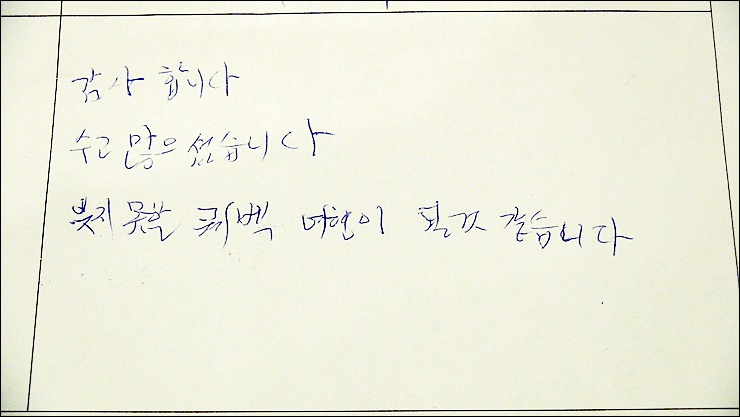 감사 합니다
수고 많으셨습니다
못지 못할 퀘벡 여행이 될것 같습니다